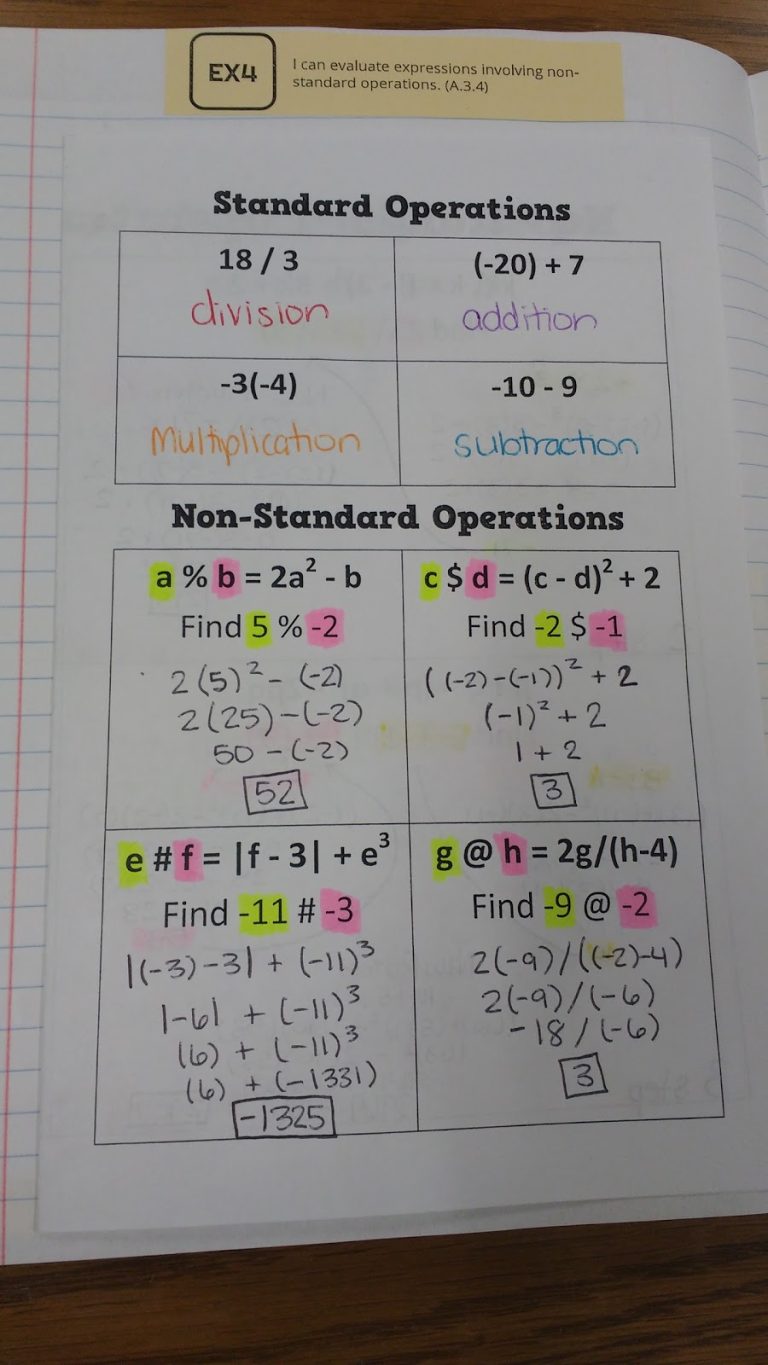 EX4
I can evaluate expressions involving non-
standard operations. (A.3.4)
Standard Operations
18 / 3
division
(-20) + 7
addition
-3(-4)
Multiplication
-10 - 9
subtraction
Non-Standard Operations
a % b = 2a² - b
Find 5 % -2
2(5)² - (-2)
2(25) - (-2)
50 - (-2)
52
c $ d = (c - d)² + 2
Find -2 $ -1
((-2) - (-1))² + 2
(-1)² + 2
1 + 2
3
e # f = |f - 3| + e³
Find -11 # -3
|(-3) - 3| + (-11)³
|-6| + (-11)³
(6) + (-11)³
(6) + (-1331)
-1325
g @ h = 2g/(h-4)
Find -9 @ -2
2(-9)/((-2)-4)
2(-9)/(-6)
-18/(-6)
3